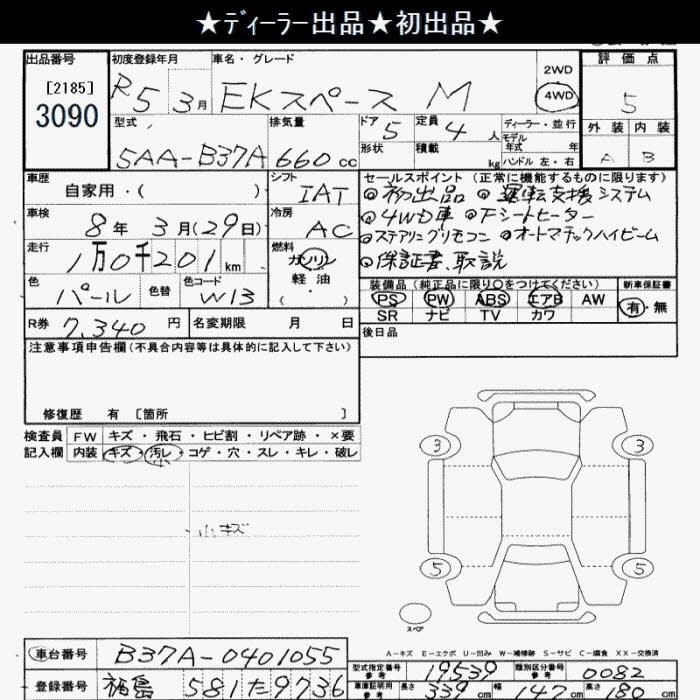 ★ディーラー出品★初出品★
出品番号 初度登録年月 車名・グレード 評価点
[2185] R5 3月 EKスペース M 2WD 4WD 5
3090
型式 排気量 ドア 5 定員 4人 ディーラー・並行 外装 内装
5AA-B37A 660cc 形状 積載 kg モデル年式 年 ハンドル 左・右 A B
車歴 自家用・( ) シフト IAT セールスポイント (正常に機能するものに限ります)
◎初出品 ◎運転支援システム
車検 8年 3月(29日) 冷房 AC ◎4WD車 ◎Fシートヒーター
走行 1万0千201km 燃料 ガソリン 軽油 ・ ◎ステアリングリモコン ◎オートマチックハイビーム
◎保証書、取説
色 パール 色替 色コード W13 装備品 (純正品に限り○をつけてください) 新車保証書
PS PW ABS エアB AW 有・無
R券 7,340円 名変期限 月 日 SR ナビ TV カワ
注意事項申告欄 (不具合内容等は具体的に記入して下さい) 後日品
修復歴 有 [箇所 ]
検査員 FW キズ・飛石・ヒビ割・リペア跡・×要
記入欄 内装 キズ・汚レ・コゲ・穴・スレ・キレ・破レ
3 3
小キズ
5 5
スペア
A-キズ E-エクボ U-凹み W-補修跡 S-サビ C-腐食 XX-交換済
車台番号 B37A-0401055
型式指定番号 参考 19539 類別区分番号 参考 0082
登録番号 福島 581た9736 車庫証明用 参考 長さ 339cm 幅 147cm 高さ cm